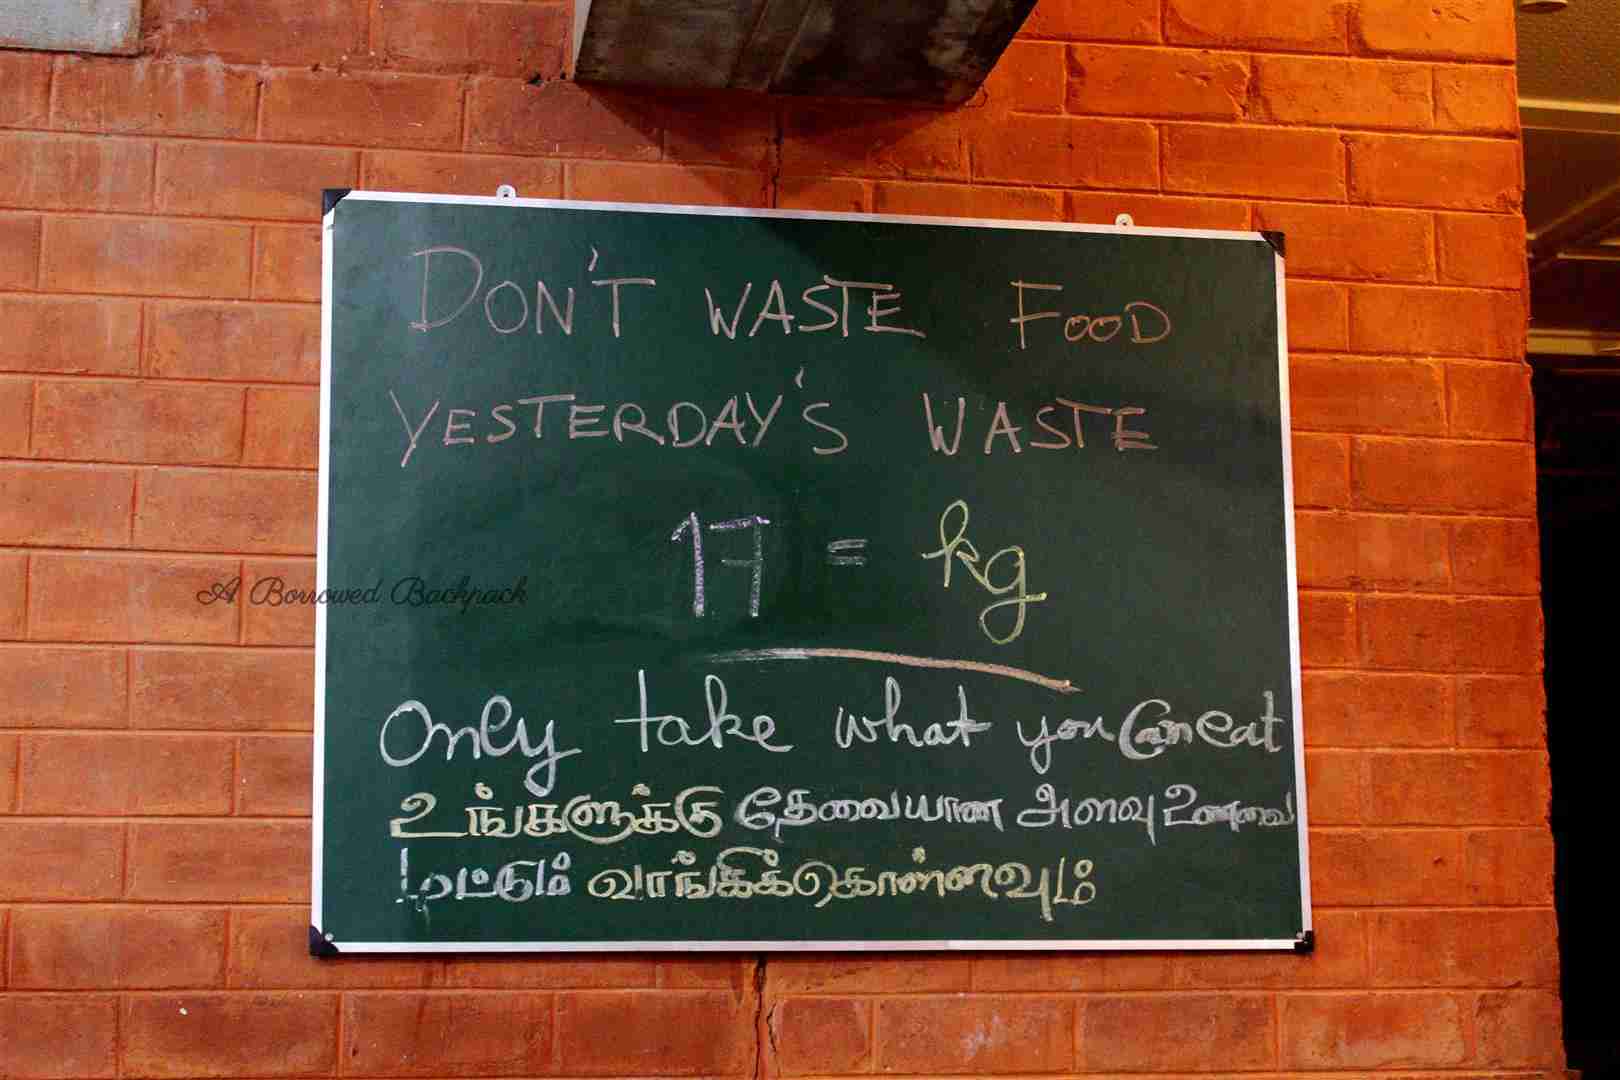 DON'T WASTE FOOD
YESTERDAY'S WASTE
17 = kg
Only take what you can eat
உங்களுக்கு தேவையான அளவு உணவை
மட்டும் வாங்கிக்கொள்ளவும்
A Borrowed Backpack